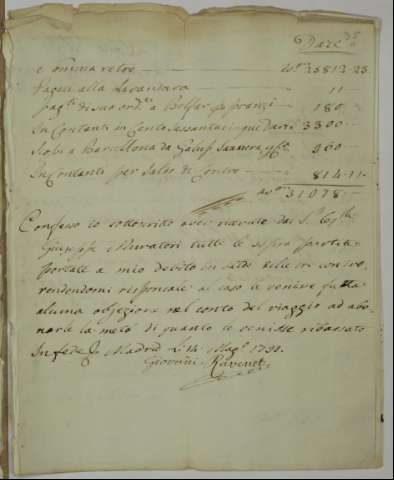 Dare
e omina retro — 25813..23
Pagai alla Lavandara — 11 —
pag.ti di suo ord.e a Belfar p pranzi — 180 —
In Contanti in Conto sessantacinque Darà 3300 —
Robi a Barcellona da Galup 960 —
In Contanti per Saldo di Contro — 814..11
31078 —
Confesso io sottoscritto aver ricevute dal S.r
Giuseppe Muratori tutte le sopra partite
portate a mio debito in saldo delle tre contro
rendendomi responsale al caso le venisse fatta
alcuna objezione nel conto del viaggio ad abo-
narle la metà di quanto le venisse ribassato
In fede Madrid li 14 Mag.o 1791.
Giovanni Ravenet